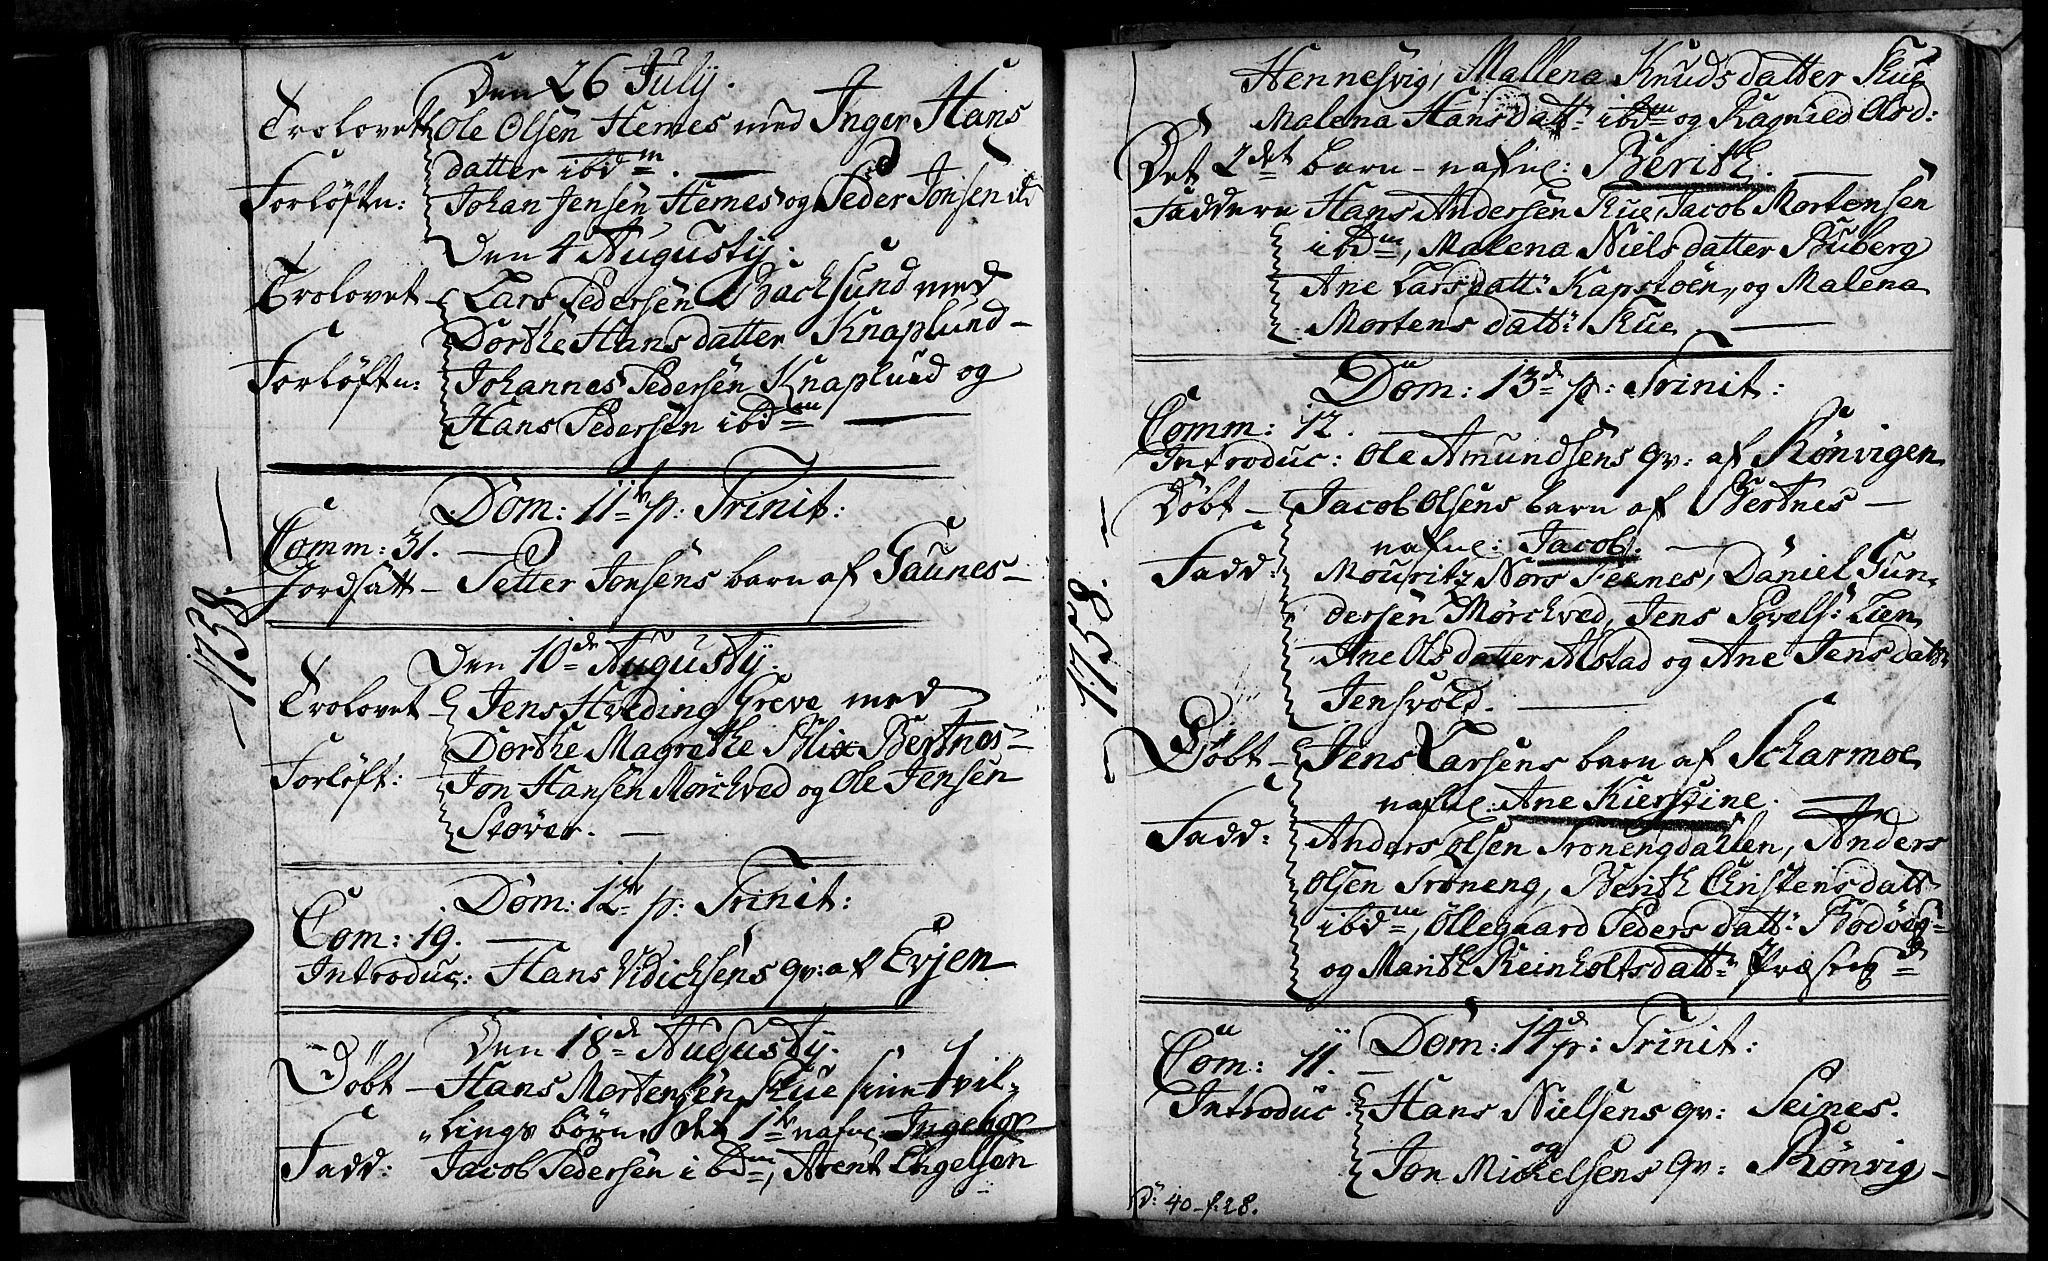 1758
Den 26 July.
Trolovet Ole Olsen Hernes med Inger Hans
datter ibidm.
Forløftn: Johan Jensen Hernes og Peder Jonsen ibd
Den 4 Augusty:
Trolovet – Lars Pedersen Backsund med
Dorthe Hansdatter Knaplund –
Forløftn: Johannes Pedersen Knaplund og
Hans Pedersen ibdm
Dom: 11te p: Trinit:
Comm: 31. –
Jordsatt – Petter Jonsens barn af Gaunes –
Den 10de Augusty.
Trolovet – Jens Hveding Greve med
Dorthe Magrethe Blix Bertnes –
Forløft: Jon Hansen Mørchved og Ole Jensen
Støver. –
Dom: 12te p: Trinit:
Com: 19. –
Introduc: Hans Didichsens qv: af Evjen
Den 18de Augusty.
Døbt – Hans Mortensen Rue sine Tvil-
lings børn, det 1te nafnl. Ingebor
Fadd: Jacob Pedersen ibdm, Arent Engelsen
1758.
Hennesvig, Mallena Knudsdatter Rue
Malena Hansdatt: ibdm og Ragnild Olsd:
Det 2det barn – nafnl: Berith. –
Faddere Hans Andersen Rue, Jacob Mortensen
ibdm, Malena Nielsdatter Buberg
Ane Larsdatt: Kapstøen, og Malena
Mortensdatt: Rue. –
Dom: 13de p: Trinit:
Comm: 12. –
Introduc: Ole Amundsens qv: af Rønvigen
Døbt – Jacob Olsens barn af Bertnes –
nafnl: Jacob. –
Fadd: Mouritz Nors Fernes, Daniel Gun-
dersen Mørchved, Jens Povels: Lien
Ane Olsdatter Alstad og Ane Jensdatt:
Jensvold. –
Døbt – Jens Larsens barn af Scharmoe
nafnl: Ane Kierstine. –
Fadd: Anders Olsen Tronengdallen, Anders
Olsen Troneng, Berith Christensdatt
ibdm, Ollegaard Pedersdatt: Bodøeg-
og Marith Reinholtsdatt: Præsteg
Dom: 14de p: Trinit:
Com: 11. –
Introduc: Hans Nielsens qv: Seines.
og
Jon Mickelsens qv: Rønvig –
d: 40 – f: 28.